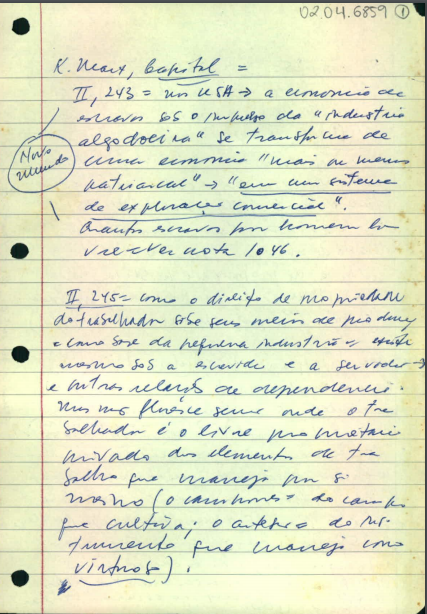 02.04.6859 ①
K. Marx, Capital =
II, 243 = nos USA → a economia de
escravos sob o impulso da "industria
algodoeira" se transforma de
uma economia "mais ou menos
patriarcal" → "em um sistema
de exploração comercial".
Novo
mundo
Quantos escravos por homem li
vre → Ver nota 1046.
II, 245 = como o direito de propriedade
do trabalhador sobre seus meios de
= como base da pequena industria =
mesmo sob a escravidão e a servidão
e outras relações de dependencia.
mas floresce onde o tra
balhador é o livre proprietario
privado dos elementos de tra
balho que maneja por si
mesmo (o campones = do campo
que cultiva; o artesão = do ins
trumento que maneja como
virtuose).